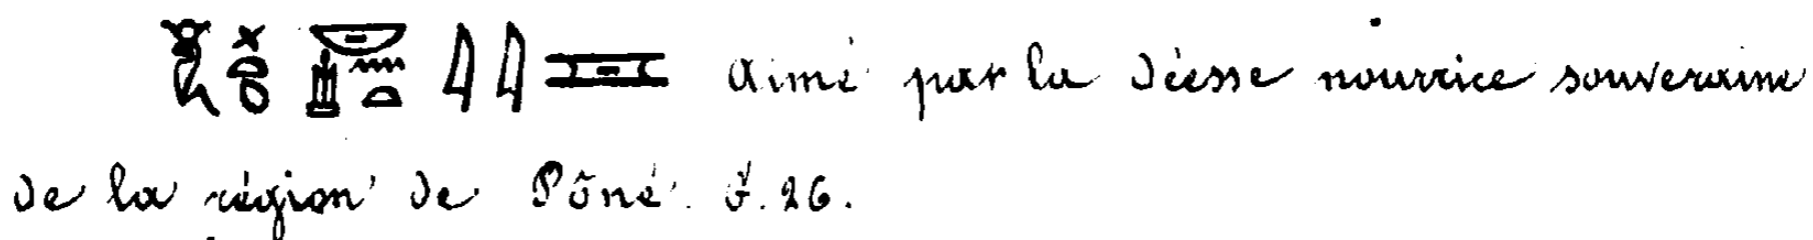 aimé par la Déesse nourrice souveraine
de la région de Pôné. 26.